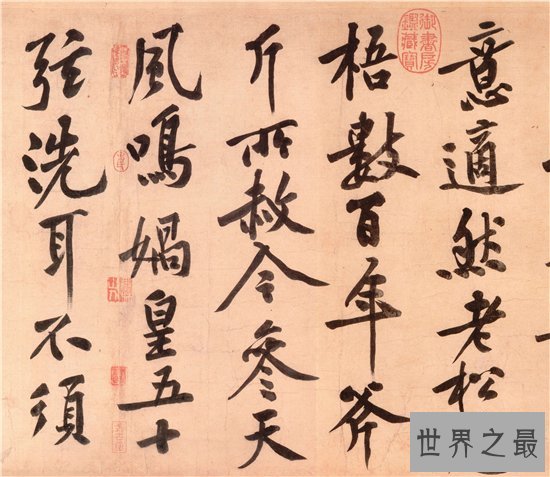 意適然老松
梧數百年斧
斤所赦今參天
風鳴媧皇五十
弦洗耳不須
御書房鑑藏寶
世界之最